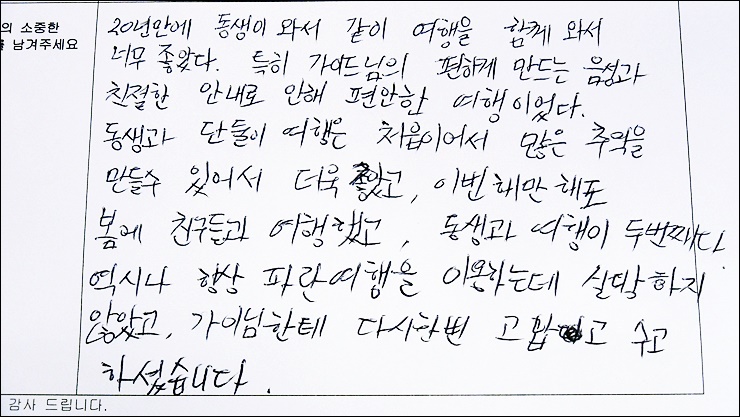 의 소중한
남겨주세요
20년만에 동생이 와서 같이 여행을 함께 와서
너무 좋았다. 특히 가이드님의 편하게 만드는 음성과
친절한 안내로 인해 편안한 여행이었다.
동생과 단둘이 여행은 처음이어서 많은 추억을
만들수 있어서 더욱 좋았고, 이번해만 해도
봄에 친구들과 여행했고, 동생과 여행이 두번째다.
역시나 항상 파란여행을 이용하는데 실망하지
않았고, 가이님한테 다시한번 고맙고 수고
하셨습니다.
감사 드립니다.